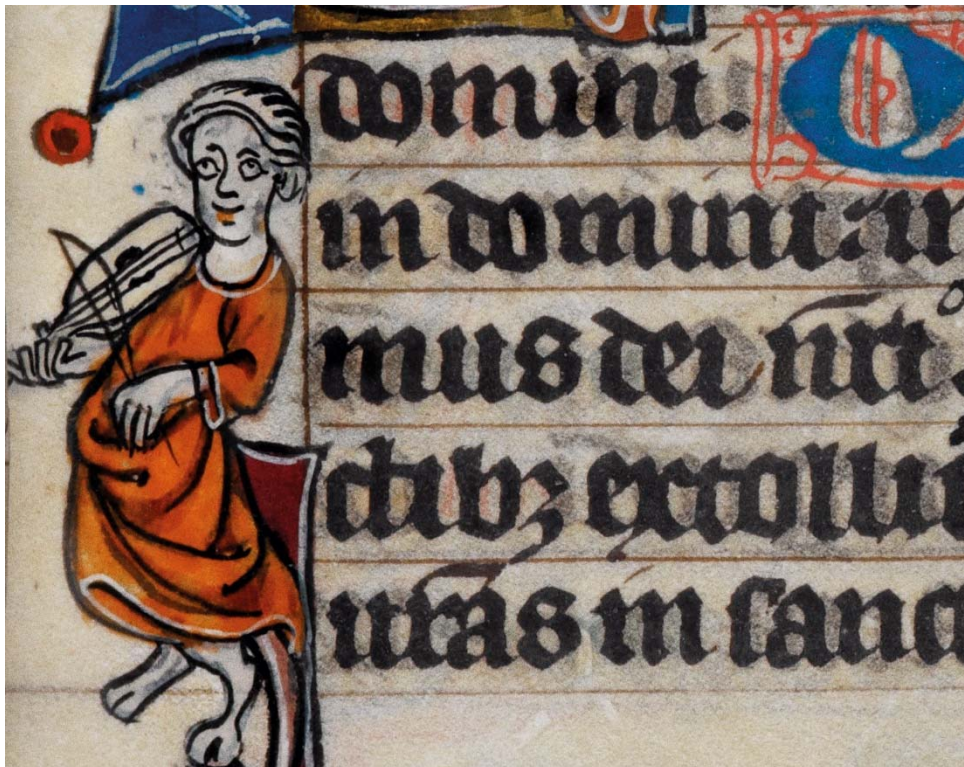 domini. Q
in domini: in
mus dei nr̄i.
ctibz extollit
uras in sanct